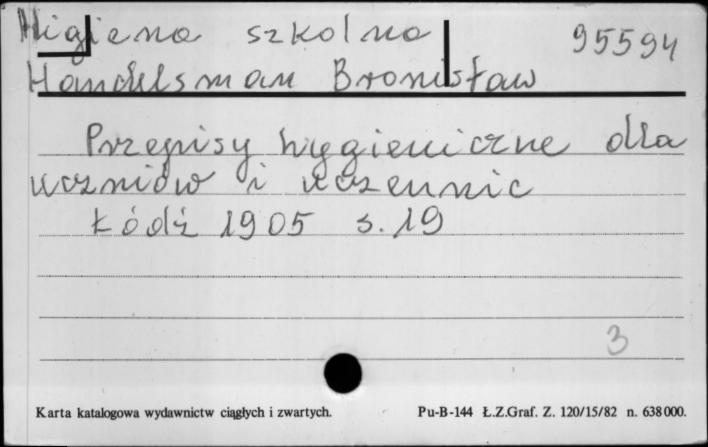 Higiena szkolna 95594
Handelsman Bronisław
Przepisy hygieniczne dla
uczniów i uczennic
Łódź 1905 s. 19
3
Karta katalogowa wydawnictw ciągłych i zwartych. Pu-B-144 Ł.Z.Graf. Z. 120/15/82 n. 638000.